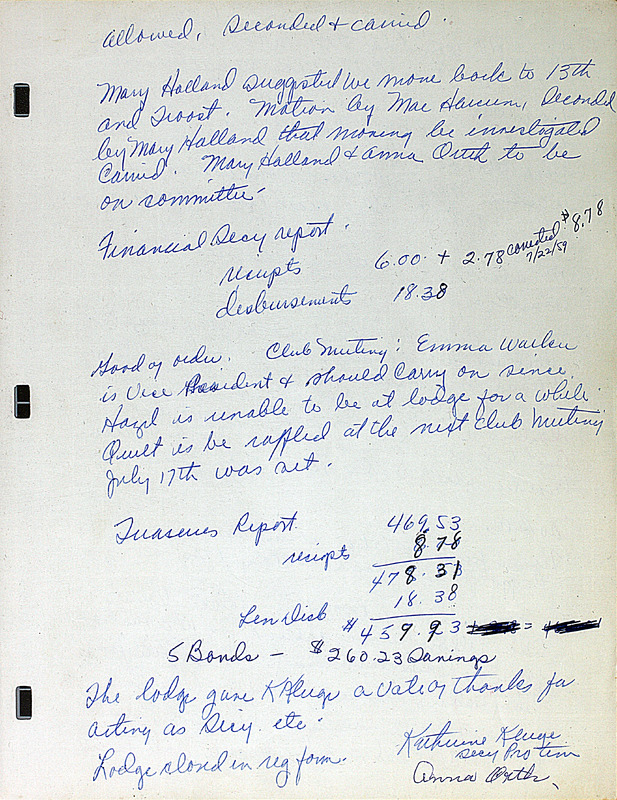 allowed, Seconded & carried.
Mary Holland suggested we move back to 13th
and Troost. Motion by Mae Hansen, Seconded
by Mary Holland that moving be investigated
Carried. Mary Holland & Anna Orth to be
on committee.
Financial Secy report.
receipts 6.00 + 2.78 corrected $8.78
7/22/59
disbursements 18.38
Good of order. Club Meeting: Emma
is Vice President & should carry on since
Hazel is unable to be at lodge for a while.
Quilt is be raffled at the next Club Meeting
July 17th was set.
Treasures Report. 469.53
receipts 8.78
478.31
18.38
Less Disb $459.93
5 Bonds - $260.23 Savings
The lodge gave K Kluge a vote of thanks for
acting as Secy. etc.
Lodge closed in reg form.
Katherine Kluge
Secy Pro tem
Anna Orth.